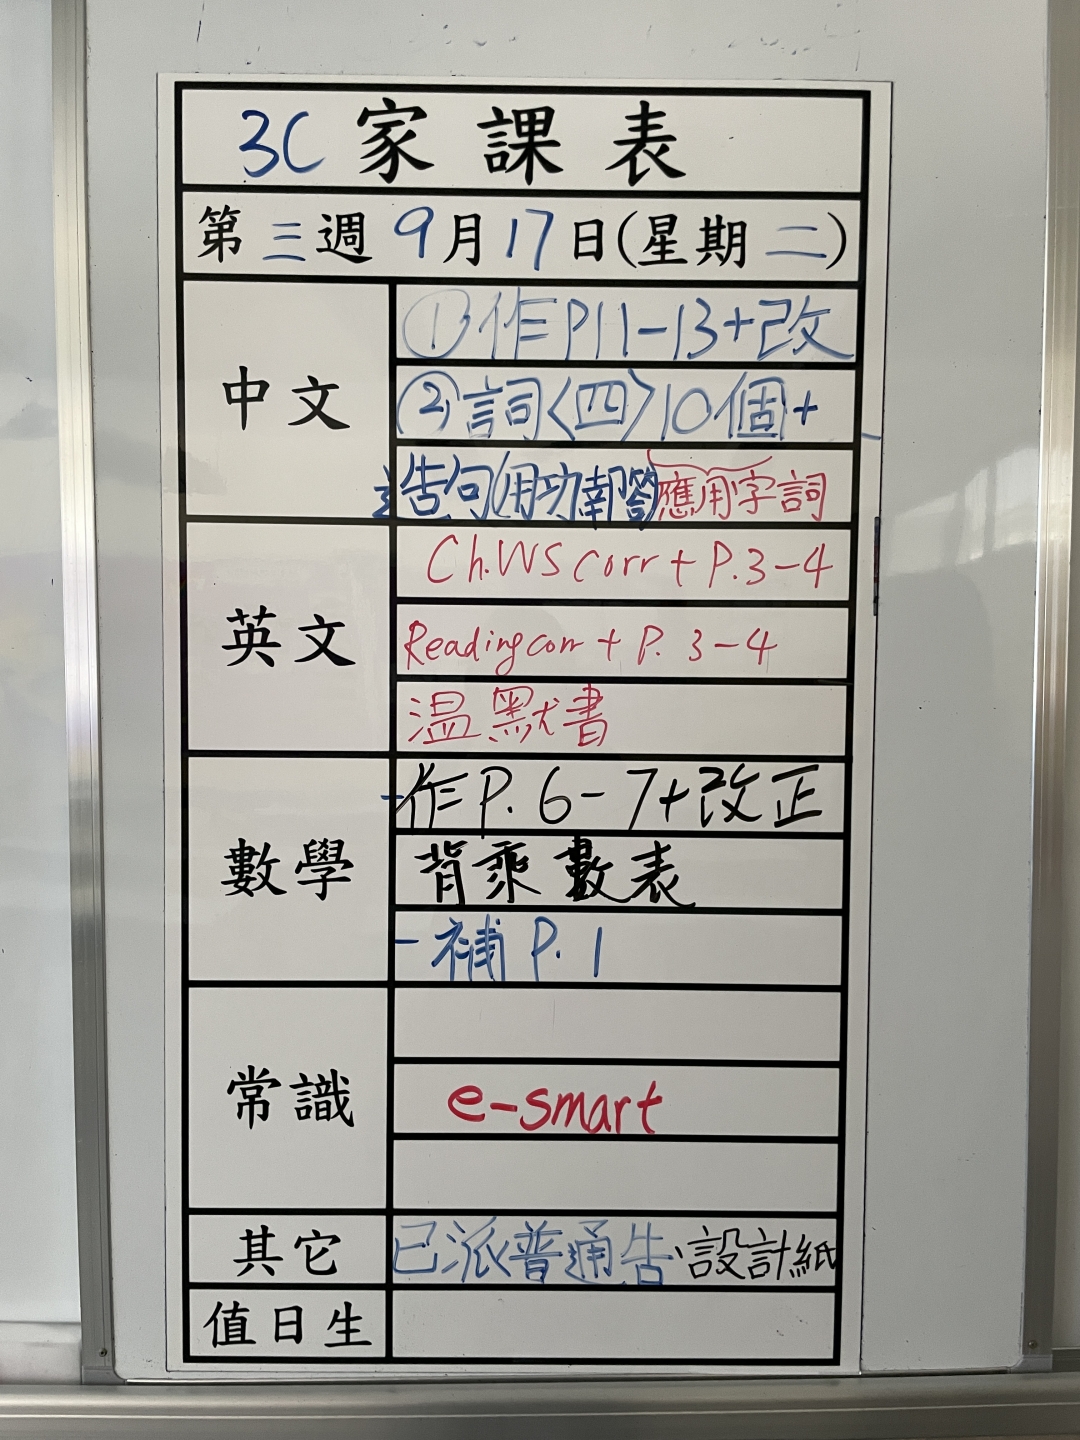 3C 家課表
第三週 9月17日(星期二)
中文
①作P11-13+改
②詞〈四〉10個+
造句(用功、報答
應用字詞
英文
Ch.WS corr + P.3-4
Reading corr + P. 3-4
溫默書
數學
作P. 6-7+改正
背乘數表
補 P. 1
常識
e-smart
其它
已派普通告、設計紙
值日生